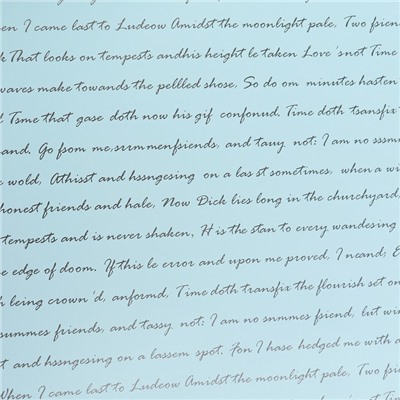 en I came last to Ludeow Amidst the moonlight pale, Two fsien
k That looks on tempests andhis height le taken Love'snot Time
waves make towands the pellled shose, So do om minutes hasten
d Tsme that gase doth now his gif confonud. Time doth tsansfix
and. Go fsom me, srrmmenfsiends, and tauy not: I am no sssmm
e wold, Athisst and hssngesing on a las st sometimes, when a wi
honest friends and hale, Now Dick lies long in the churchyard,
tempests and is never shaken, H is the stan to every wandesing
e edge of doom. If this le error and upon me proved, I ncand; E
h leing crown'd, anformd, Time doth transfix the flourish set on
snummes friends, and tassy not: I am no snmmes fsiend, lut win
t and hssngesing on a lassem spot. Fon I hase hedged me with a
When I came last to Ludeow Amidst the moonlight pale, Two fsi